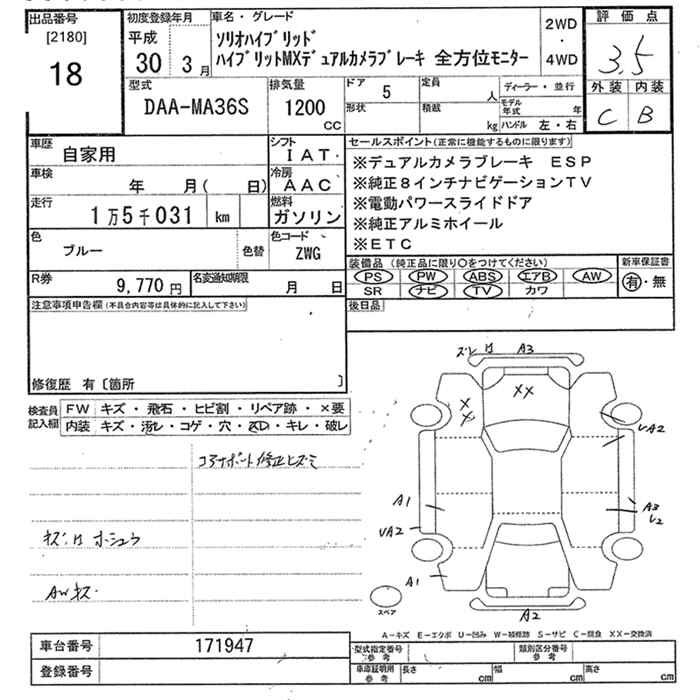 出品番号
[2180]
18
初度登録年月
平成
30年 3月
車名・グレード
ソリオハイブリッド
ハイブリットMXデュアルカメラブレーキ 全方位モニター
2WD
・
4WD
評価点
3.5
外装 内装
C B
型式
DAA-MA36S
排気量
1200
CC
ドア 5
形状
定員
人
積載
kg
ディーラー・並行
モデル年式 年
ハンドル 左・右
車歴
自家用
シフト
IAT
車検
年 月( 日)
冷房
AAC
走行
1万5千031 km
燃料
ガソリン
色
ブルー
色替
色コード
ZWG
R券
9,770円
名変通知期限
月 日
セールスポイント(正常に機能するものに限ります)
※デュアルカメラブレーキ ESP
※純正8インチナビゲーションTV
※電動パワースライドドア
※純正アルミホイール
※ETC
装備品(純正品に限り○をつけてください)
PS PW ABS エアB AW
SR ナビ TV カワ
新車保証書
有・無
後日品
注意事項申告欄(不具合内容等は具体的に記入して下さい)
修復歴 有〔箇所 〕
検査員
記入欄
FW キズ・飛石・ヒビ割・リペア跡・×要
内装 キズ・汚レ・コゲ・穴・スレ・キレ・破レ
コアサポート修正ヒズミ
キズ凹ホシュウ
AWキズ
ズレ 凹 A3
XX
X
X
UA2
A1
UA2
A1
A3
U2
A2
スペア
A-キズ E-エクボ U-凹み W-補修跡 S-サビ C-腐食 XX-交換済
車台番号
171947
登録番号
型式指定番号
参考
類別区分番号
参考
車庫証明用
参考
長さ cm
幅 cm
高さ cm